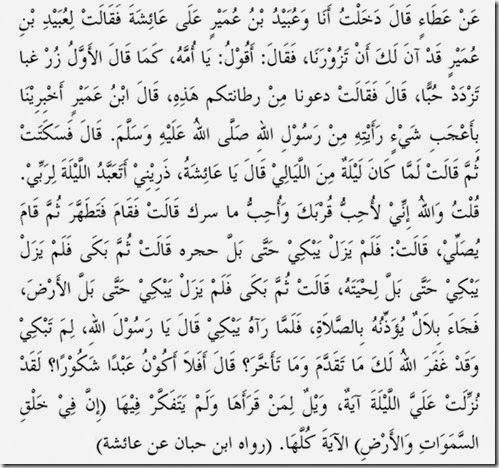 عَنْ عَطَاءٍ قَالَ دَخَلْتُ أَنَا وَعُبَيْدُ بْنُ عُمَيْرٍ عَلَى عَائِشَةَ فَقَالَتْ لِعُبَيْدِ بْنِ
عُمَيْرٍ قَدْ آنَ لَكَ أَنْ تَزُوْرَنَا، فَقَالَ: أَقُوْلُ: يَا أُمَّهْ، كَمَا قَالَ الأَوَّلُ زُرْ غبا
تَزْدَدْ حُبًّا، قَالَ فَقَالَتْ دعونا مِنْ رطانتكم هَذِهِ، قَالَ ابْنُ عَمَيْرٍ أَخْبِرِيْنَا
بِأَعْجَبِ شَيْءٍ رَأَيْتِهِ مِنْ رَسُوْلِ اللهِ صَلَّى اللهُ عَلَيْهِ وَسَلَّمَ. قَالَ فَسَكَتَتْ
ثُمَّ قَالَتْ لَمَّا كَانَ لَيْلَةٌ مِنَ اللَّيَالِيْ قَالَ يَا عَائِشَةُ، ذَرِيْنِيْ أَتَعَبَّدُ اللَّيْلَةَ لِرَبِّيْ.
قُلْتُ وَاللهُ إِنِّيْ لَأُحِبُّ قُرْبَكَ وَأُحِبُّ ما سرك قَالَتْ فَقَامَ فَتَطَهَّرَ ثُمَّ قَامَ
يُصَلِّيْ، قَالَتْ: فَلَمْ يَزَلْ يَبْكِيْ حَتَّى بَلَّ حجره قَالَتْ ثُمَّ بَكَى فَلَمْ يَزَلْ
يَبْكِيْ حَتَّى بَلَّ لِحْيَتَهُ، قَالَتْ ثُمَّ بَكَى فَلَمْ يَزَلْ يَبْكِيْ حَتَّى بَلَّ الأَرْضَ،
فَجَاءَ بِلاَلٌ يُؤَذِّنُهُ بِالصَّلاَةِ، فَلَمَّا رَآهُ يَبْكِيْ قَالَ يَا رَسُوْلَ اللهِ، لِمَ تَبْكِيْ
وَقَدْ غَفَرَ اللهُ لَكَ مَا تَقَدَّمَ وَمَا تَأَخَّرَ؟ قَالَ أَفَلاَ أَكُوْنُ عَبْدًا شَكُوْرًا؟ لَقَدْ
نُزِّلَتْ عَلَيَّ اللَّيْلَةَ آيَةٌ، وَيْلٌ لِمَنْ قَرَأَهَا وَلَمْ يَتَفَكَّرْ فِيْهَا (إِنَّ فِيْ خَلْقِ
السَّمَوَاتِ وَالأَرْضِ) الآيَةَ كُلَّهَا. (رواه ابن حبان عن عائشة)